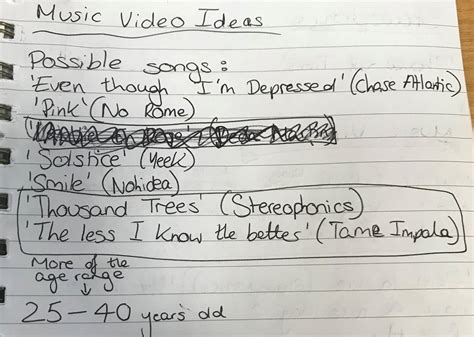 Music Video Ideas
Possible songs:
'Even though I'm Depressed' (Chase Atlantic)
'Pink' (No Rome)
'Solstice' (Yeek)
'Smile' (Nohidea)
'Thousand Trees' (Stereophonics)
'The less I know the better' (Tame Impala)
More of the
age range
25-40 years old